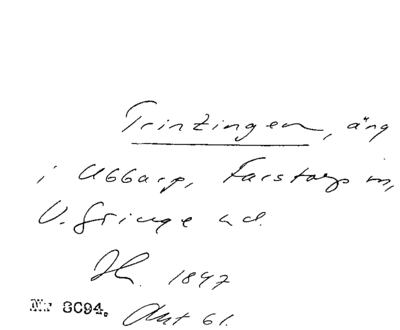 Trintzingen, äng
i Abbarp, Farstorps sn,
V. Göinge hd.
Jh. 1847
Nr 8094. Akt 61.